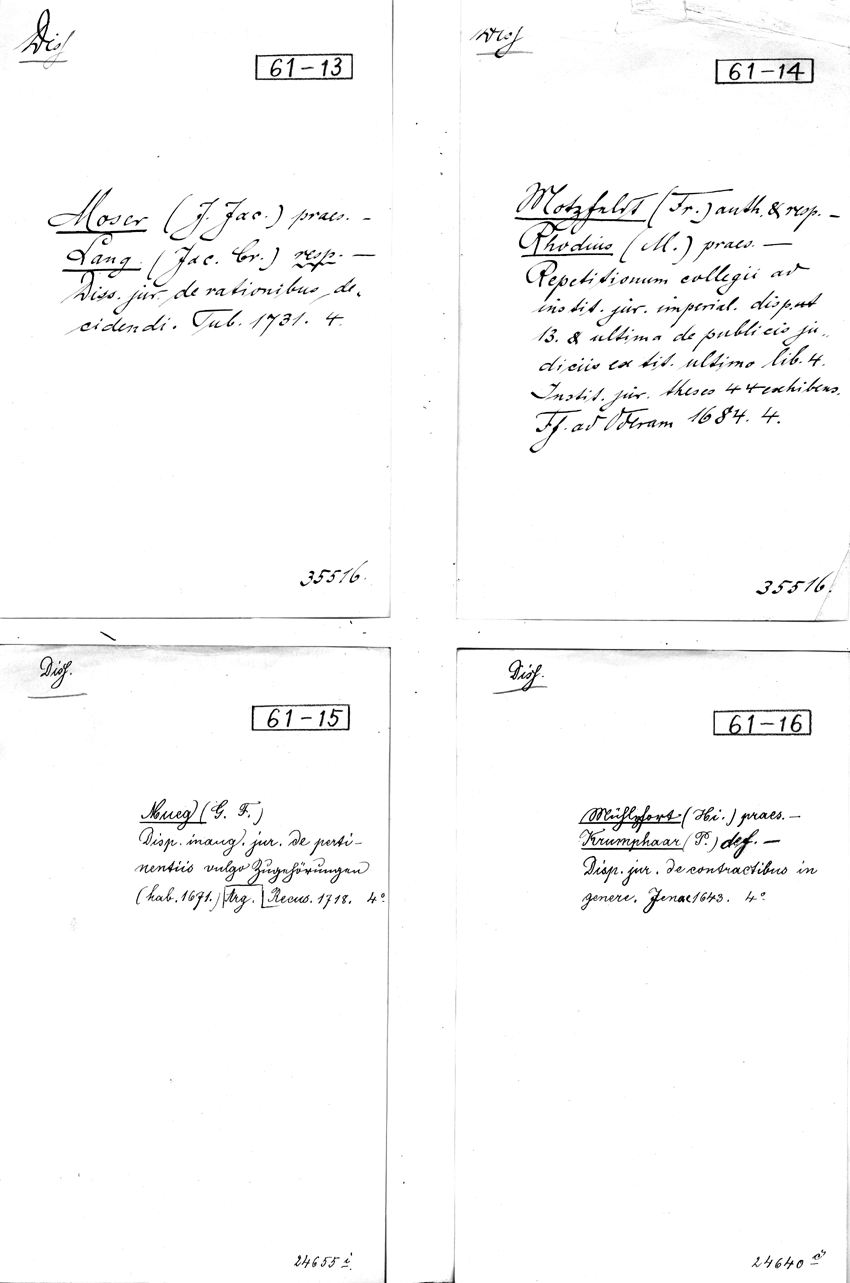 Diss
61-13
Moser (J. Jac.) praes. —
Lang (Jac. Cr.) resp. —
Diss. jur. de rationibus de-
cidendi. Tub. 1731. 4.
35516.
Diss
61-14
Motzfeldt (Fr.) auth. & resp. —
Rhodius (M.) praes. —
Repetitionum collegii ad
instit. jur. imperial. disput
13. & ultima de publicis ju-
diciis ex tit. ultimo lib. 4.
Instit. jur. theses 44 exhibens.
Ff. ad Oderam 1684. 4.
35516.
Diss.
61-15
Mueg (G. F.)
Disp. inaug. jur. de perti-
nentiis vulgo Zugehörungen
(hab. 1671.) Arg. Recus. 1718. 4°
24655 i
Diss.
61-16
Mühlpfort (Hi.) praes. —
Krumphaar (P.) def. —
Disp. jur. de contractibus in
genere. Jenae 1643. 4°
24640